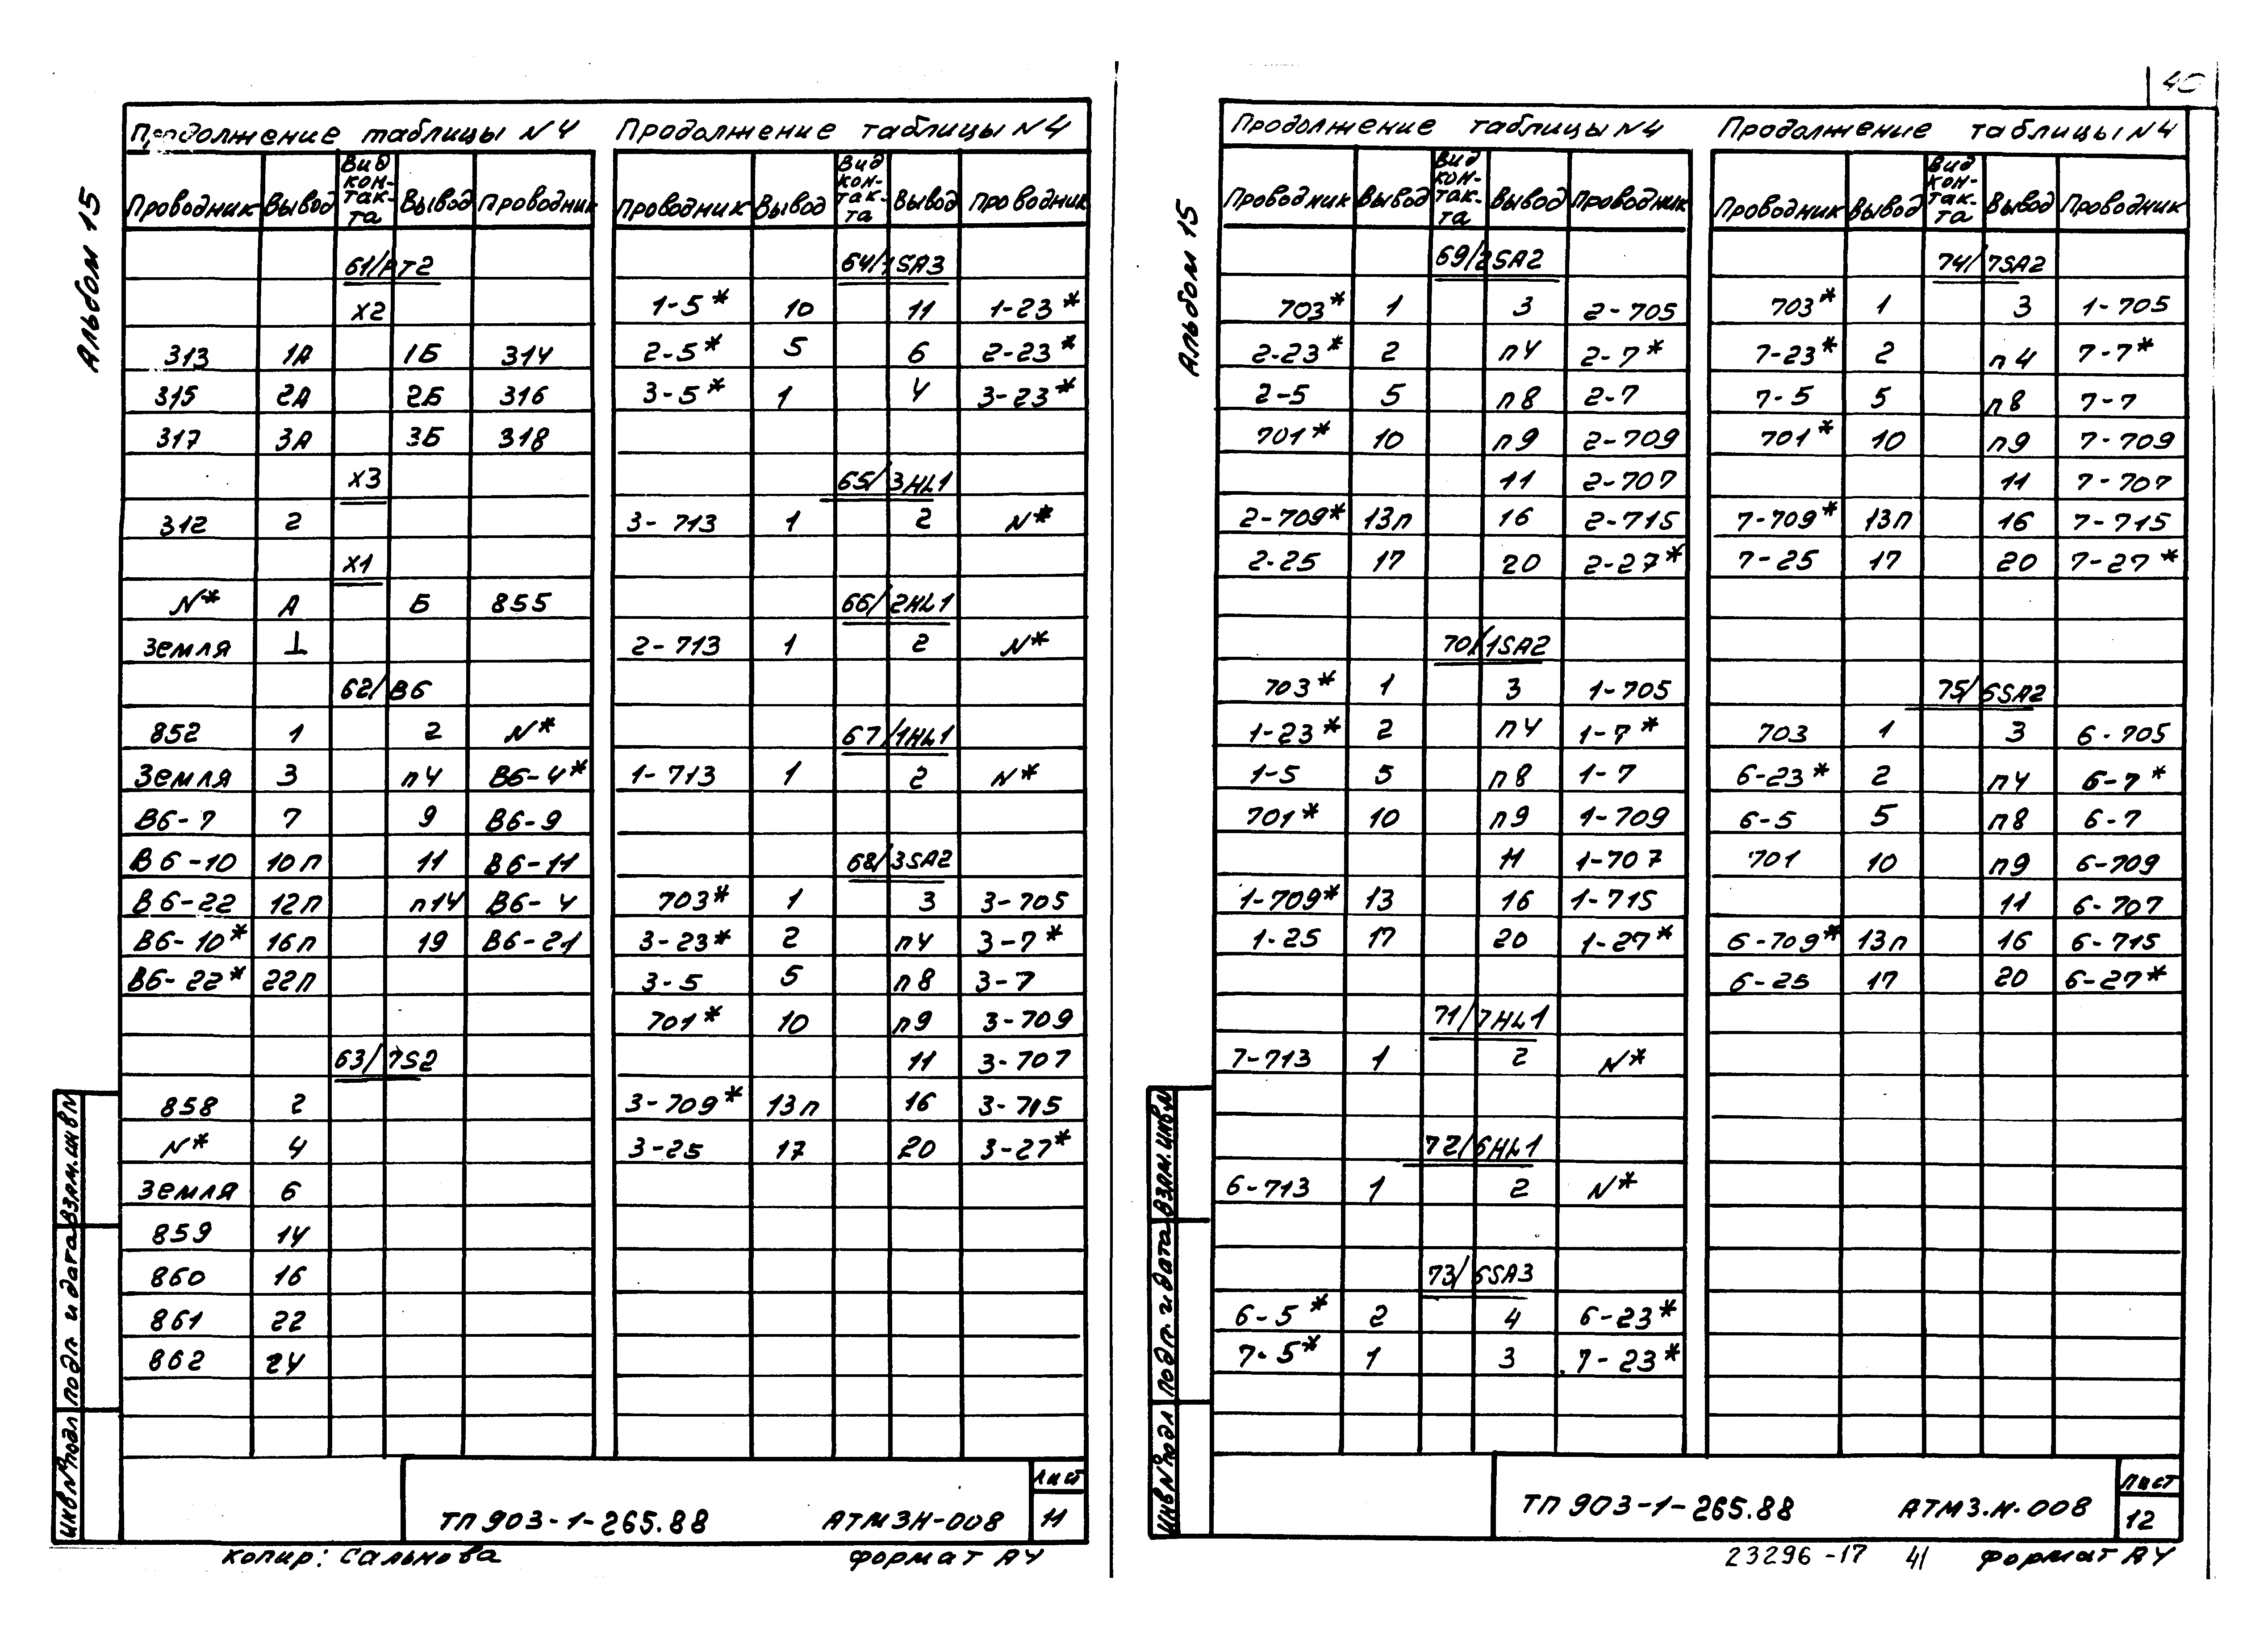 40
Альбом 15
Продолжение таблицы N4
Проводник Вывод Вид контакта Вывод Проводник
61/РТ2
X2
313 1А 1Б 314
315 2А 2Б 316
317 3А 3Б 318
X3
312 2
X1
N* А Б 855
Земля ⊥
62/В6
852 1 2 N*
Земля 3 п4 В6-4*
В6-7 7 9 В6-9
В6-10 10п 11 В6-11
В6-22 12п п14 В6-4
В6-10* 16п 19 В6-21
В6-22* 22п
63/7S2
858 2
N* 4
Земля 6
859 14
860 16
861 22
862 24
Продолжение таблицы N4
Проводник Вывод Вид контакта Вывод Проводник
64/1SA3
1-5* 10 11 1-23*
2-5* 5 6 2-23*
3-5* 1 4 3-23*
65/3HL1
3-713 1 2 N*
66/2HL1
2-713 1 2 N*
67/1HL1
1-713 1 2 N*
68/3SA2
703* 1 3 3-705
3-23* 2 п4 3-7*
3-5 5 п8 3-7
701* 10 п9 3-709
11 3-707
3-709* 13п 16 3-715
3-25 17 20 3-27*
взам. инв N
подп. и дата
инв N°подл
ТП 903-1-265.88 АТМ3Н-008
Лист
11
Копир: Сальнова формат А4
Альбом 15
Продолжение таблицы N4
Проводник Вывод Вид контакта Вывод Проводник
69/2SA2
703* 1 3 2-705
2-23* 2 п4 2-7*
2-5 5 п8 2-7
701* 10 п9 2-709
11 2-707
2-709* 13п 16 2-715
2-25 17 20 2-27*
70/1SA2
703* 1 3 1-705
1-23* 2 п4 1-7*
1-5 5 п8 1-7
701* 10 п9 1-709
11 1-707
1-709* 13 16 1-715
1-25 17 20 1-27*
71/7HL1
7-713 1 2 N*
72/6HL1
6-713 1 2 N*
73/6SA3
6-5* 2 4 6-23*
7-5* 1 3 7-23*
Продолжение таблицы N4
Проводник Вывод Вид контакта Вывод Проводник
74/7SA2
703* 1 3 1-705
7-23* 2 п4 7-7*
7-5 5 п8 7-7
701* 10 п9 7-709
11 7-707
7-709* 13п 16 7-715
7-25 17 20 7-27*
75/6SA2
703 1 3 6-705
6-23* 2 п4 6-7*
6-5 5 п8 6-7
701 10 п9 6-709
11 6-707
6-709* 13п 16 6-715
6-25 17 20 6-27*
взам. инв.N
подп. и дата
инв N°подл
ТП 903-1-265.88 АТМ3.Н-008
Лист
12
23296-17 41 формат А4